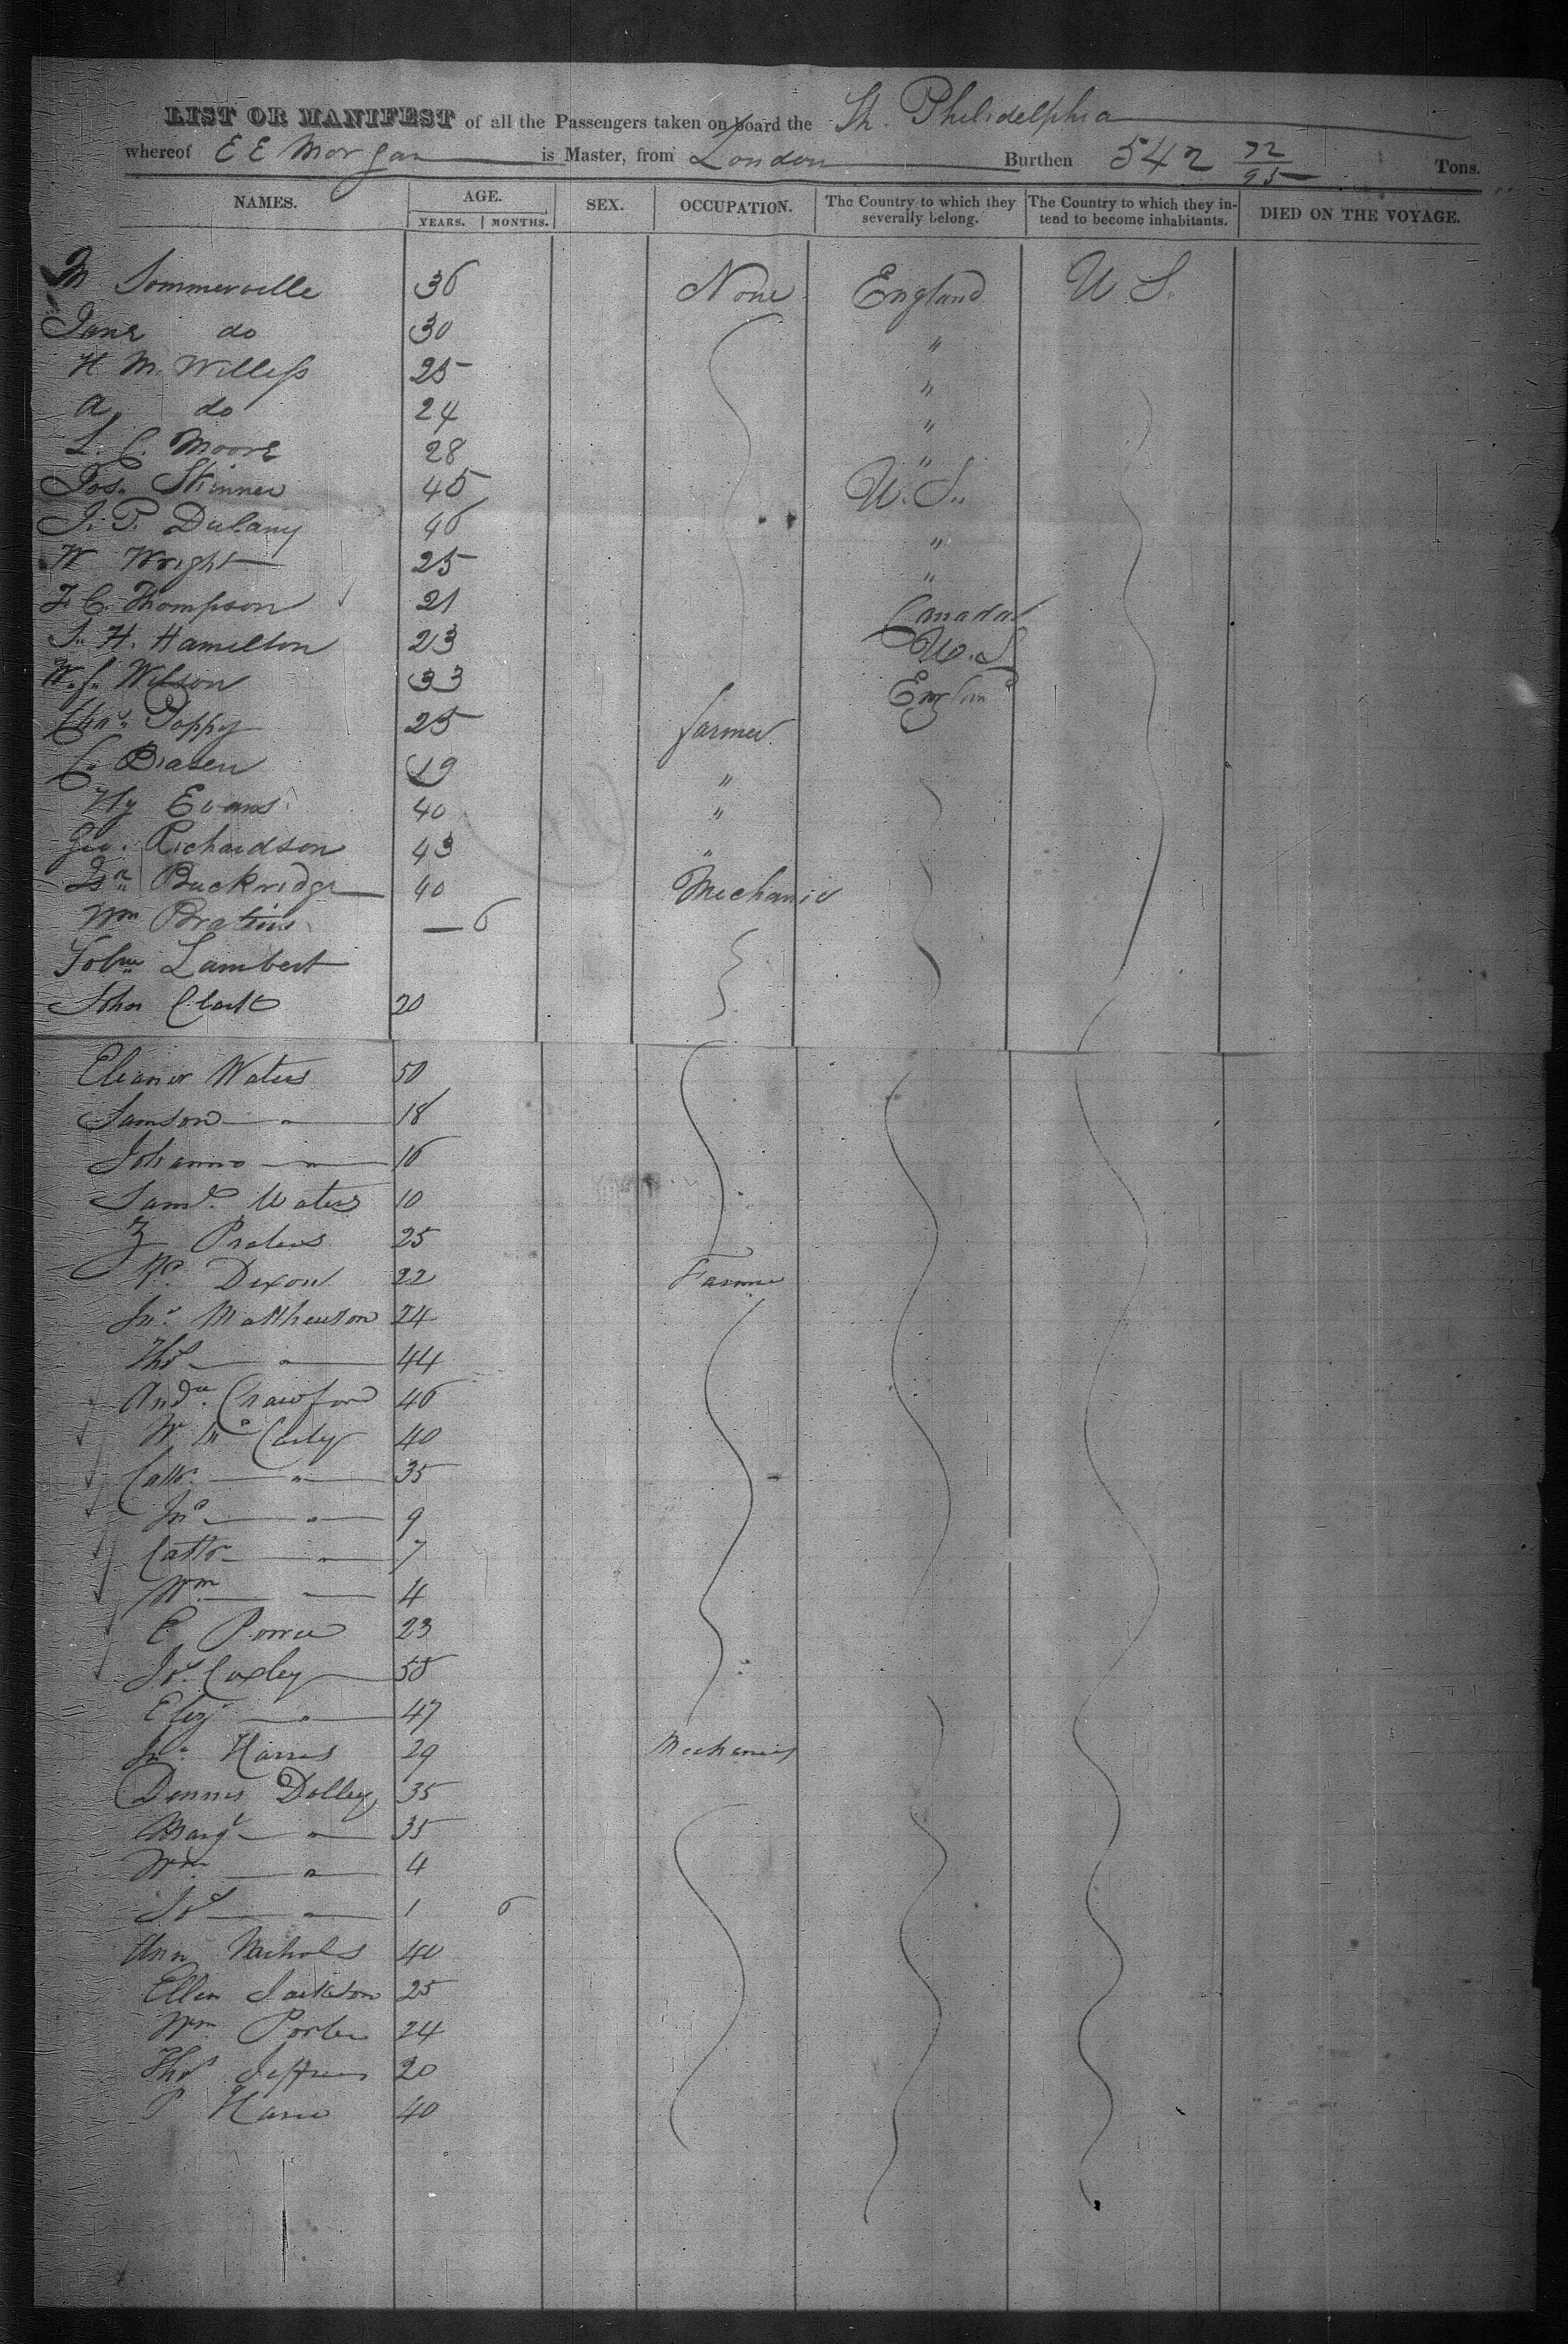 LIST OR MANIFEST of all the Passengers taken on board the Sh. Philidelphia
whereof E E Morgan is Master, from London Burthen 542 72/95 Tons.
NAMES. AGE. SEX. OCCUPATION. The Country to which they severally belong. The Country to which they intend to become inhabitants. DIED ON THE VOYAGE.
YEARS. MONTHS.
M Sommerville 36 None England U. S.
Jane do 30 "
H. M. Willess 25 "
A do 24 "
L. C. Moore 28 "
Jos. Skinner 45 U. S.
J. P. Dulany 46 "
W Wright 25 "
F. C. Thompson 21 Canada
S. H. Hamilton 23 U. S
W. J. Wilson 33 England
Chas. Poppy 25 farmer
C. Brasen 19 "
Hy Evans 40 "
Geo. Richardson 43 "
Buckridge 40 Mechanic
Wm — 6
Lambert
John Clark 20
Eleanor Waters 50
Samson — " — 18
Johanna — " — 16
Saml. Waters 10
25
Dixon 22 Farmer
Jno. Matthewson 24
Thos — " — 44
Andw. Crawford 46
W Mc Carly 40
Cathr. — " — 35
Jno — " — 9
Cathr — " — 7
Wm — " — 4
E. 23
Js. Coxley 55
Eliz — " — 47
Jno. Harris 29 Mechanics
Dennis Dolley 35
Margt — " — 35
Wm. — " — 4
Js — " — 1 6
Ann Nichols 40
Ellen Jackson 25
Wm Porter 24
Thos Jeffries 20
P 40